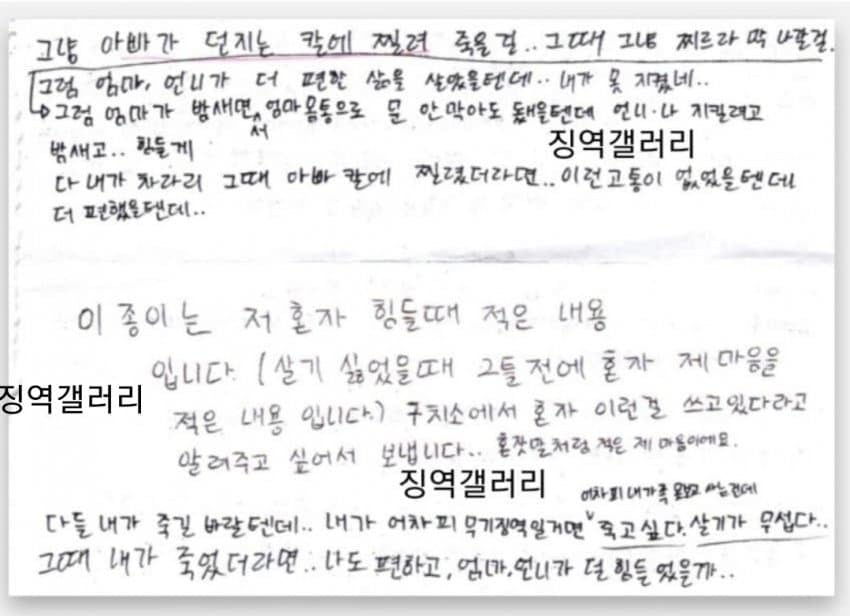 그냥 아빠가 던지는 칼에 찔려 죽을걸.. 그때 그냥 찌르라 막 나갈걸.
그럼 엄마, 언니가 더 편한 삶을 살았을텐데.. 내가 못 지켰네..
그럼 엄마가 밤새면서 엄마몸통으로 문 안 막아도 됐을텐데 언니·나 지킬려고
징역갤러리
밤새고.. 힘들게
다 내가 차라리 그때 아빠 칼에 찔렸더라면.. 이런고통이 없었을텐데
더 편했을텐데..
이 종이는 저 혼자 힘들때 적은 내용
입니다. (살기 싫었을때 2틀전에 혼자 제 마음을
징역갤러리
적은 내용 입니다.) 구치소에서 혼자 이런걸 쓰고있다라고
알려주고 싶어서 보냅니다.. 혼잣말처럼 적은 제 마음이에요.
징역갤러리
어차피 내가족 못보고 사는건데
다들 내가 죽길 바랄텐데.. 내가 어차피 무기징역일거면 죽고싶다. 살기가 무섭다..
그때 내가 죽었더라면.. 나도 편하고, 엄마, 언니가 덜 힘들었을까..